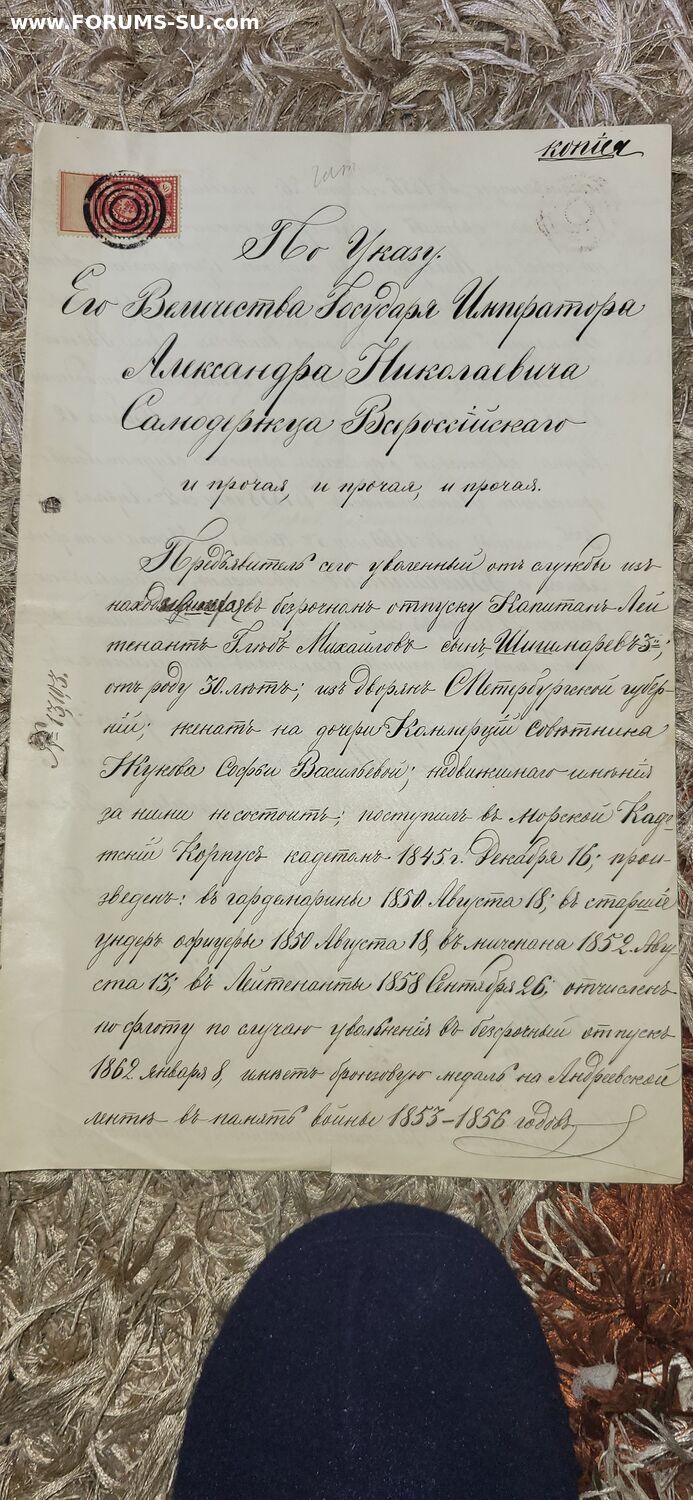 www.FORUMS-SU.com
копія
По Указу.
Его Величества Государя Императора
Александра Николаевича
Самодержца Всероссійскаго
и прочая, и прочая, и прочая.
Предъявитель сего уволенный отъ службы изъ
въ безрочномъ отпуску Капитанъ-Лей
тенантъ Глѣбъ Михайловъ сынъ Шишмаревъ 3й;
отъ роду 30 лѣтъ; изъ дворянъ СПетербургской губер-
ніи; женатъ на дочери Коллежскій Совѣтника
Жукова Софьи Васильевой; недвижимаго имѣнія
за ними не состоитъ; поступилъ въ Морской Каде-
тскій Корпусъ кадетомъ 1845 г. Декабря 16; прои-
зведенъ: въ гардемарины 1850 Августа 18; въ старшіе
ундеръ офицеры 1850 Августа 18, въ мичмана 1852 Авгу-
ста 13; въ Лейтенанты 1858 Сентября 26; отчисленъ
по флоту по случаю увольненія въ безсрочный отпускъ
1862 января 8, имѣетъ бронзовую медаль на Андреевской
лентѣ въ память войны 1853-1856 годовъ,